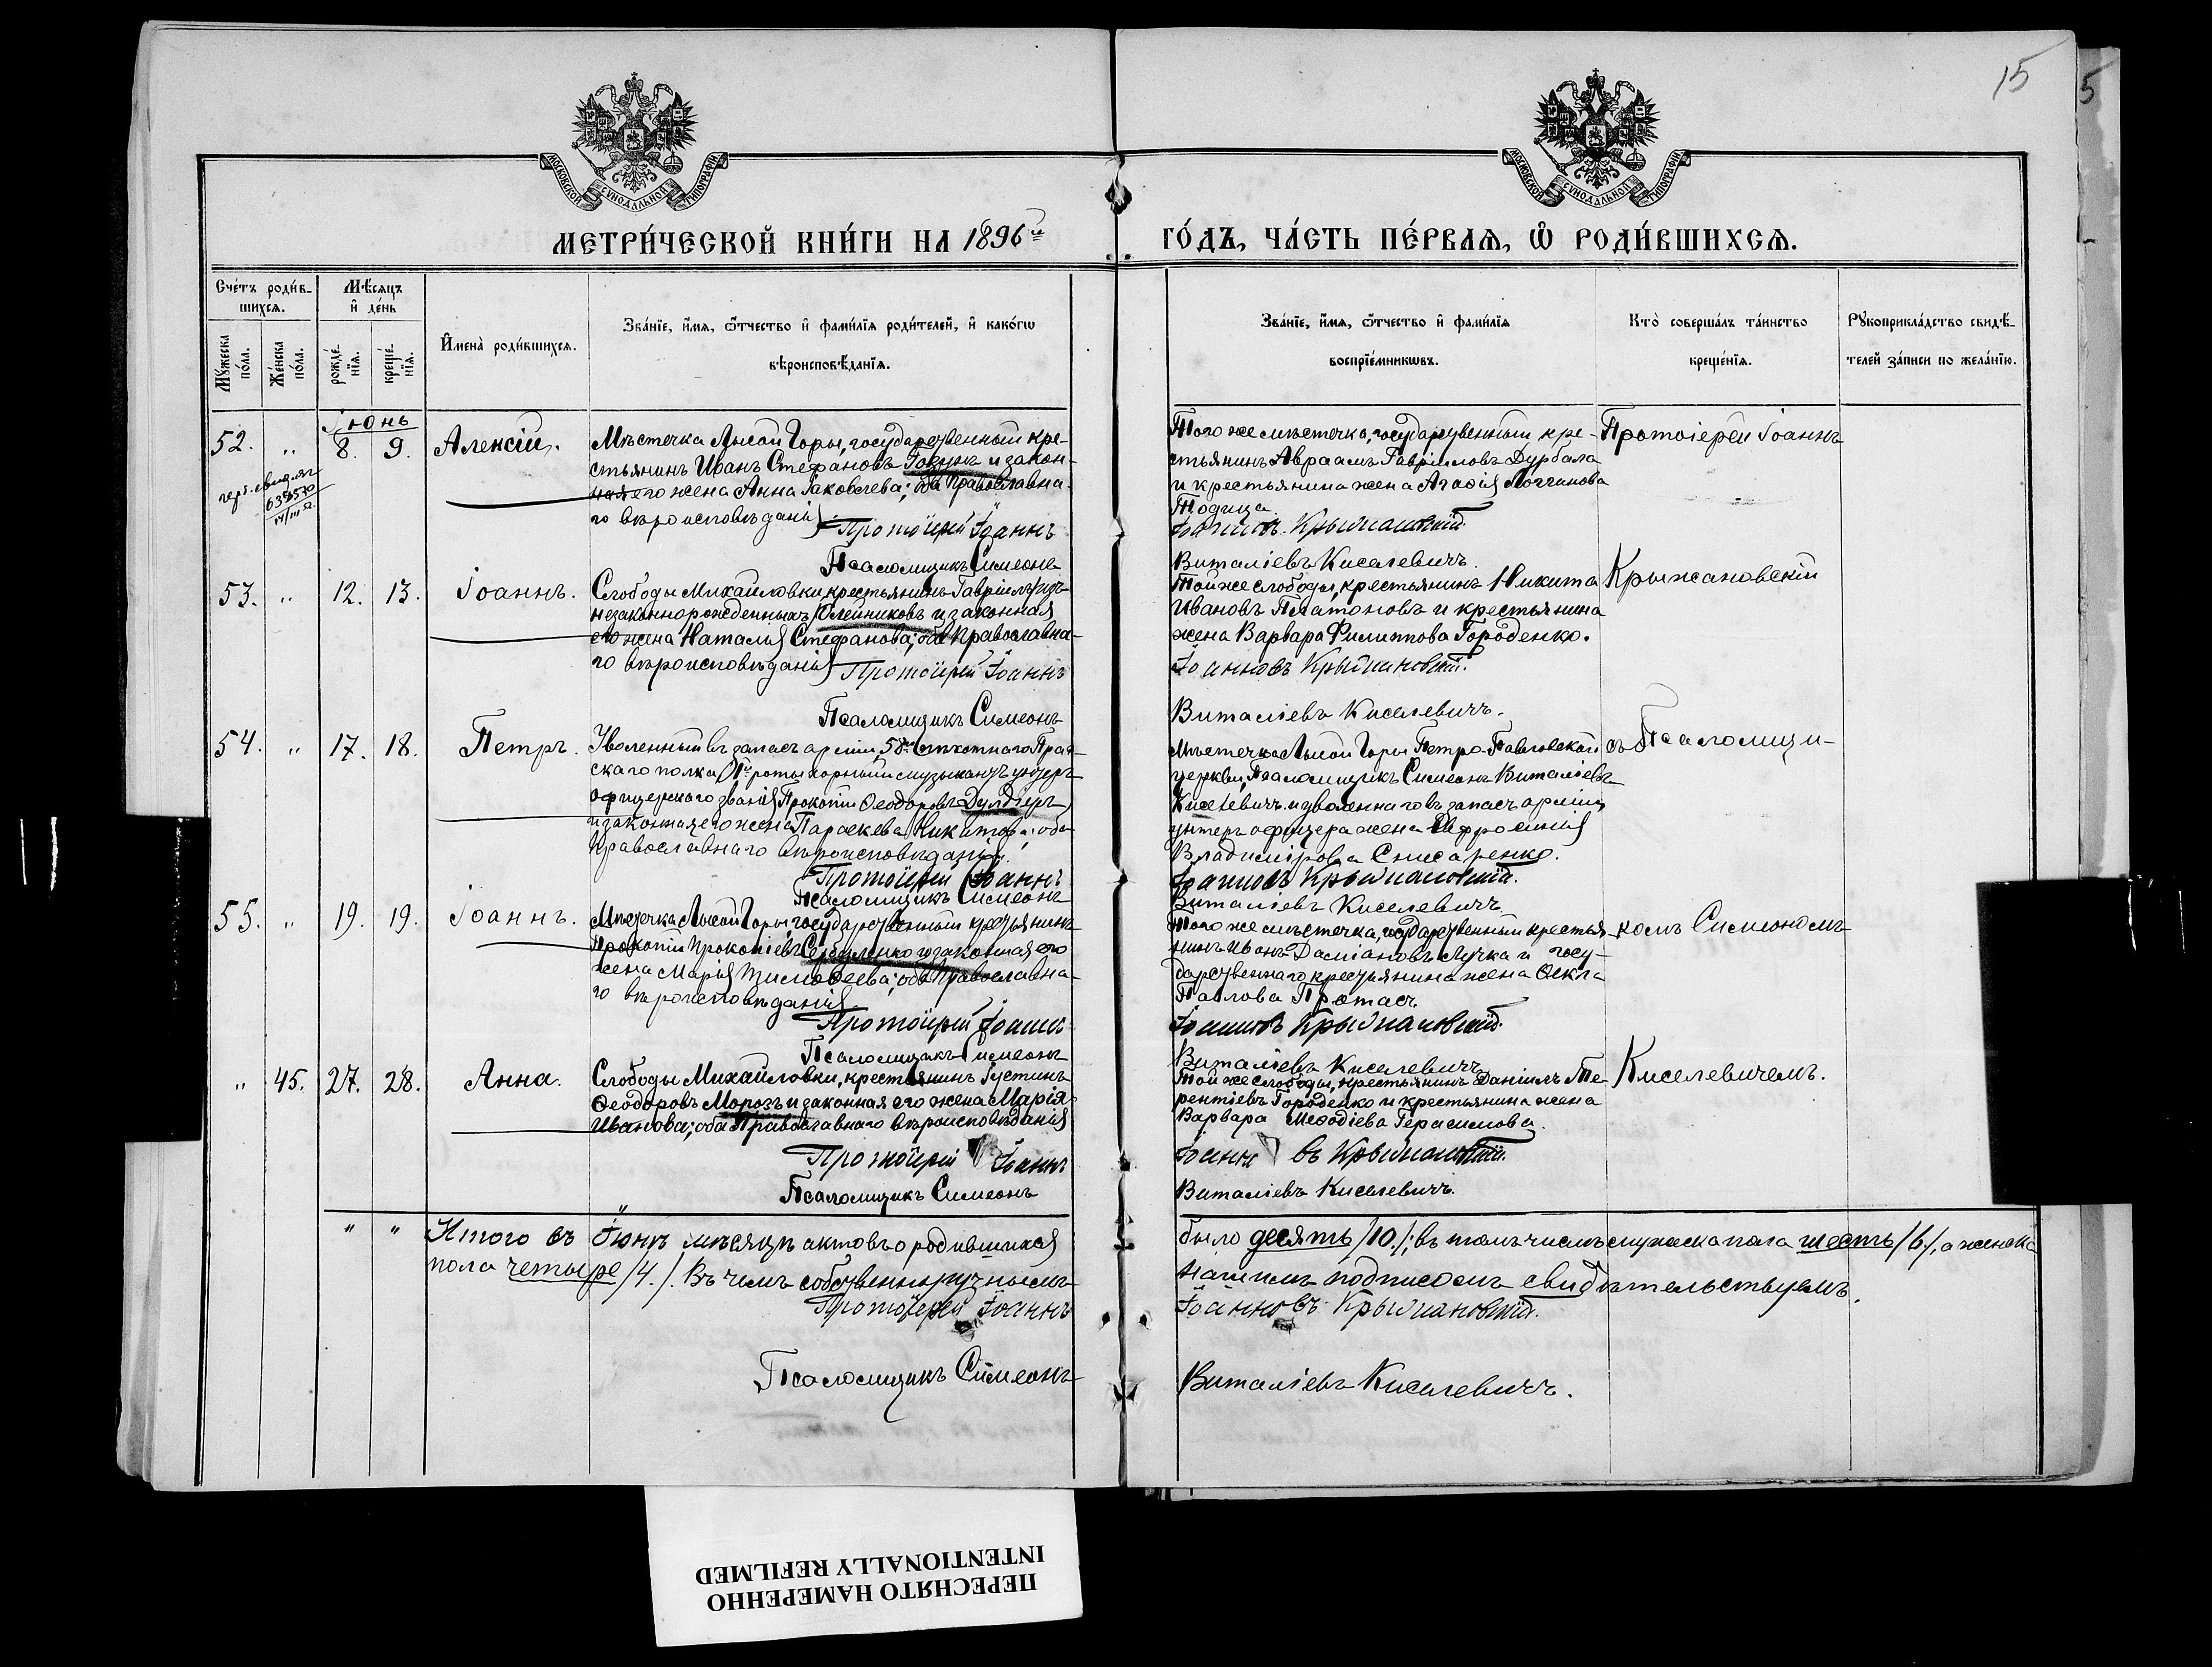 15
5
МОСКОВСКОЙ СѴНОДАЛЬНОЙ ТИПОГРАФІИ
МОСКОВСКОЙ СѴНОДАЛЬНОЙ ТИПОГРАФІИ
МЕТРИ́ЧЕСКОЙ КНИ́ГИ НА 1896й
ГО́ДЪ, ЧА́СТЬ ПЕ́РВАЯ, Ѡ РОДИ́ВШИХСЯ.
Сче́тъ роди́в-
шихся.
Мꙋ́жеска по́ла.
Же́нска по́ла.
Мѣ́сяцъ и҆ де́нь
рожде́-
нїя.
креще́-
нїя.
И҆мена̀ роди́вшихся.
Зва́нїе, и҆́мя, ѻ҆́тчество и҆ фами́лїя роди́телей, и҆ како́гѡ
вѣроисповѣ́данїя.
Зва́нїе, и҆́мя, ѻ҆́тчество и҆ фами́лїя
воспрїе́мникѡвъ.
Кто̀ соверша́лъ та́инство
креще́нїя.
Рꙋкоприкла́дство свидѣ́-
телей за́писи по жела́нїю.
Іюнь
52. " 8. 9. Алексій.
Мѣстечка Лысой Горы, государственный кре-
стьянинъ Иванъ Стефановъ и закон-
ная его жена Анна Іаковлева; оба Православна-
го вѣроисповѣданія.
Протоіерей Іоаннъ
Псаломщикъ Симеонъ
Того же мѣстечка, государственный кре-
стьянинъ Авраамъ Гавріиловъ Дурбала
и крестьянина жена Агафія Логгинова
Іоанновъ Крыжановскій.
Виталіевъ Киселевичъ.
Протоіерей Іоаннъ
53. " 12. 13. Іоаннъ.
Слободы Михайловки, крестьянинъ Гавріилъ изъ
незаконнорожденныхъ Олейниковъ и законная
его жена Наталія Стефанова; оба Православна-
го вѣроисповѣданія.
Протоіерей Іоаннъ
Псаломщикъ Симеонъ
Той же слободы, крестьянинъ Никита
Ивановъ Платоновъ и крестьянина
жена Варвара Филиппова Городенко.
Іоанновъ Крыжановскій.
Виталіевъ Киселевичъ.
Крыжановскій
54. " 17. 18. Петръ.
Уволенный въ запасъ арміи, 58го пѣхотнаго Праг-
скаго полка роты хорный музыкантъ унтеръ-
офицерскаго званія Прокопій Ѳеодоровъ
и законная его жена Параскева Никитова; оба
Православнаго вѣроисповѣданія.
Протоіерей Іоаннъ
Псаломщикъ Симеонъ
Мѣстечка Лысой Горы Петро-Павловской
церкви, Псаломщикъ Симеонъ Виталіевъ
Киселевичъ и уволеннаго въ запасъ арміи,
унтеръ офицера жена Евфросинія
Владимірова Снисаренко.
Іоанновъ Крыжановскій.
Виталіевъ Киселевичъ
съ Псаломщи-
55. " 19. 19. Іоаннъ.
Мѣстечка Лысой Горы, государственный крестьянинъ
Прокопій Прокопіевъ и законная его
жена Марія Тимоѳеева; оба Православна-
го вѣроисповѣданія.
Протоіерей Іоаннъ
Псаломщикъ Симеонъ
Того же мѣстечка, государственный крестья-
нинъ Иванъ Даміановъ Лучка и госу-
дарственнаго крестьянина жена Ѳекла
Павлова Протасъ.
Іоанновъ Крыжановскій.
Виталіевъ Киселевичъ
комъ Симеономъ
" 45. 27. 28. Анна.
Слободы Михайловки, крестьянинъ Іустинъ
Ѳеодоровъ Морозъ и законная его жена Марія
Иванова; оба Православнаго вѣроисповѣданія
Протоіерей Іоаннъ
Псаломщикъ Симеонъ
Той же слободы, крестьянинъ Даніилъ Те-
рентіевъ Городенко и крестьянина жена
Варвара Меѳодіева Герасимова.
Іоанновъ Крыжановскій.
Виталіевъ Киселевичъ.
Киселевичемъ.
" " Итого въ Іюнѣ мѣсяцѣ актовъ о родившихся
было десять /10./; въ томъ числѣ мужеска пола шесть /6./, а женска
пола четыре /4./. Въ чемъ собственноручнымъ
нашимъ подписомъ свидѣтельствуемъ.
Протоіерей Іоаннъ
Іоанновъ Крыжановскій.
Псаломщикъ Симеонъ
Виталіевъ Киселевичъ.
ПЕРЕСНЯТО НАМЕРЕННО
INTENTIONALLY REFILMED